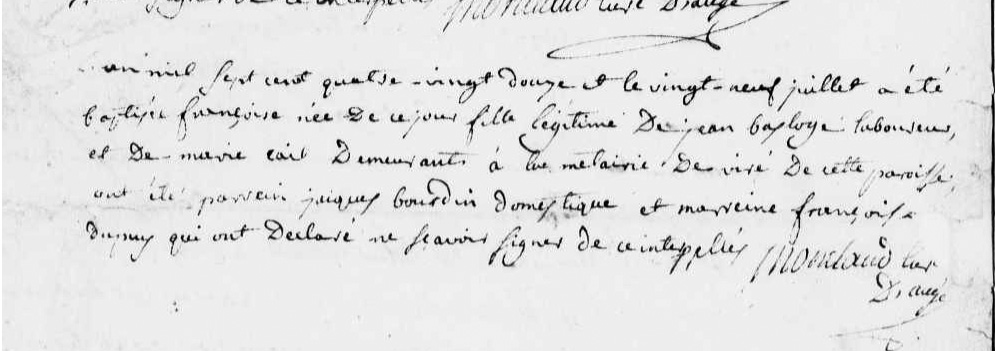 signer de ce interpellés Montaud curé D'augé
an mil sept cent quatre-vingt douze et le vingt-neuf juillet a été
baptisée françoise née De ce jour fille légitime De jean basloge laboureur,
et De marie cait Demeurants à la métairie De viré De cette paroisse,
ont été parrein jaiques bourdin domestique et marreine françoise
dupuys qui ont Déclaré ne scavoir signer de ce interpellés Montaud Cur
D'augé